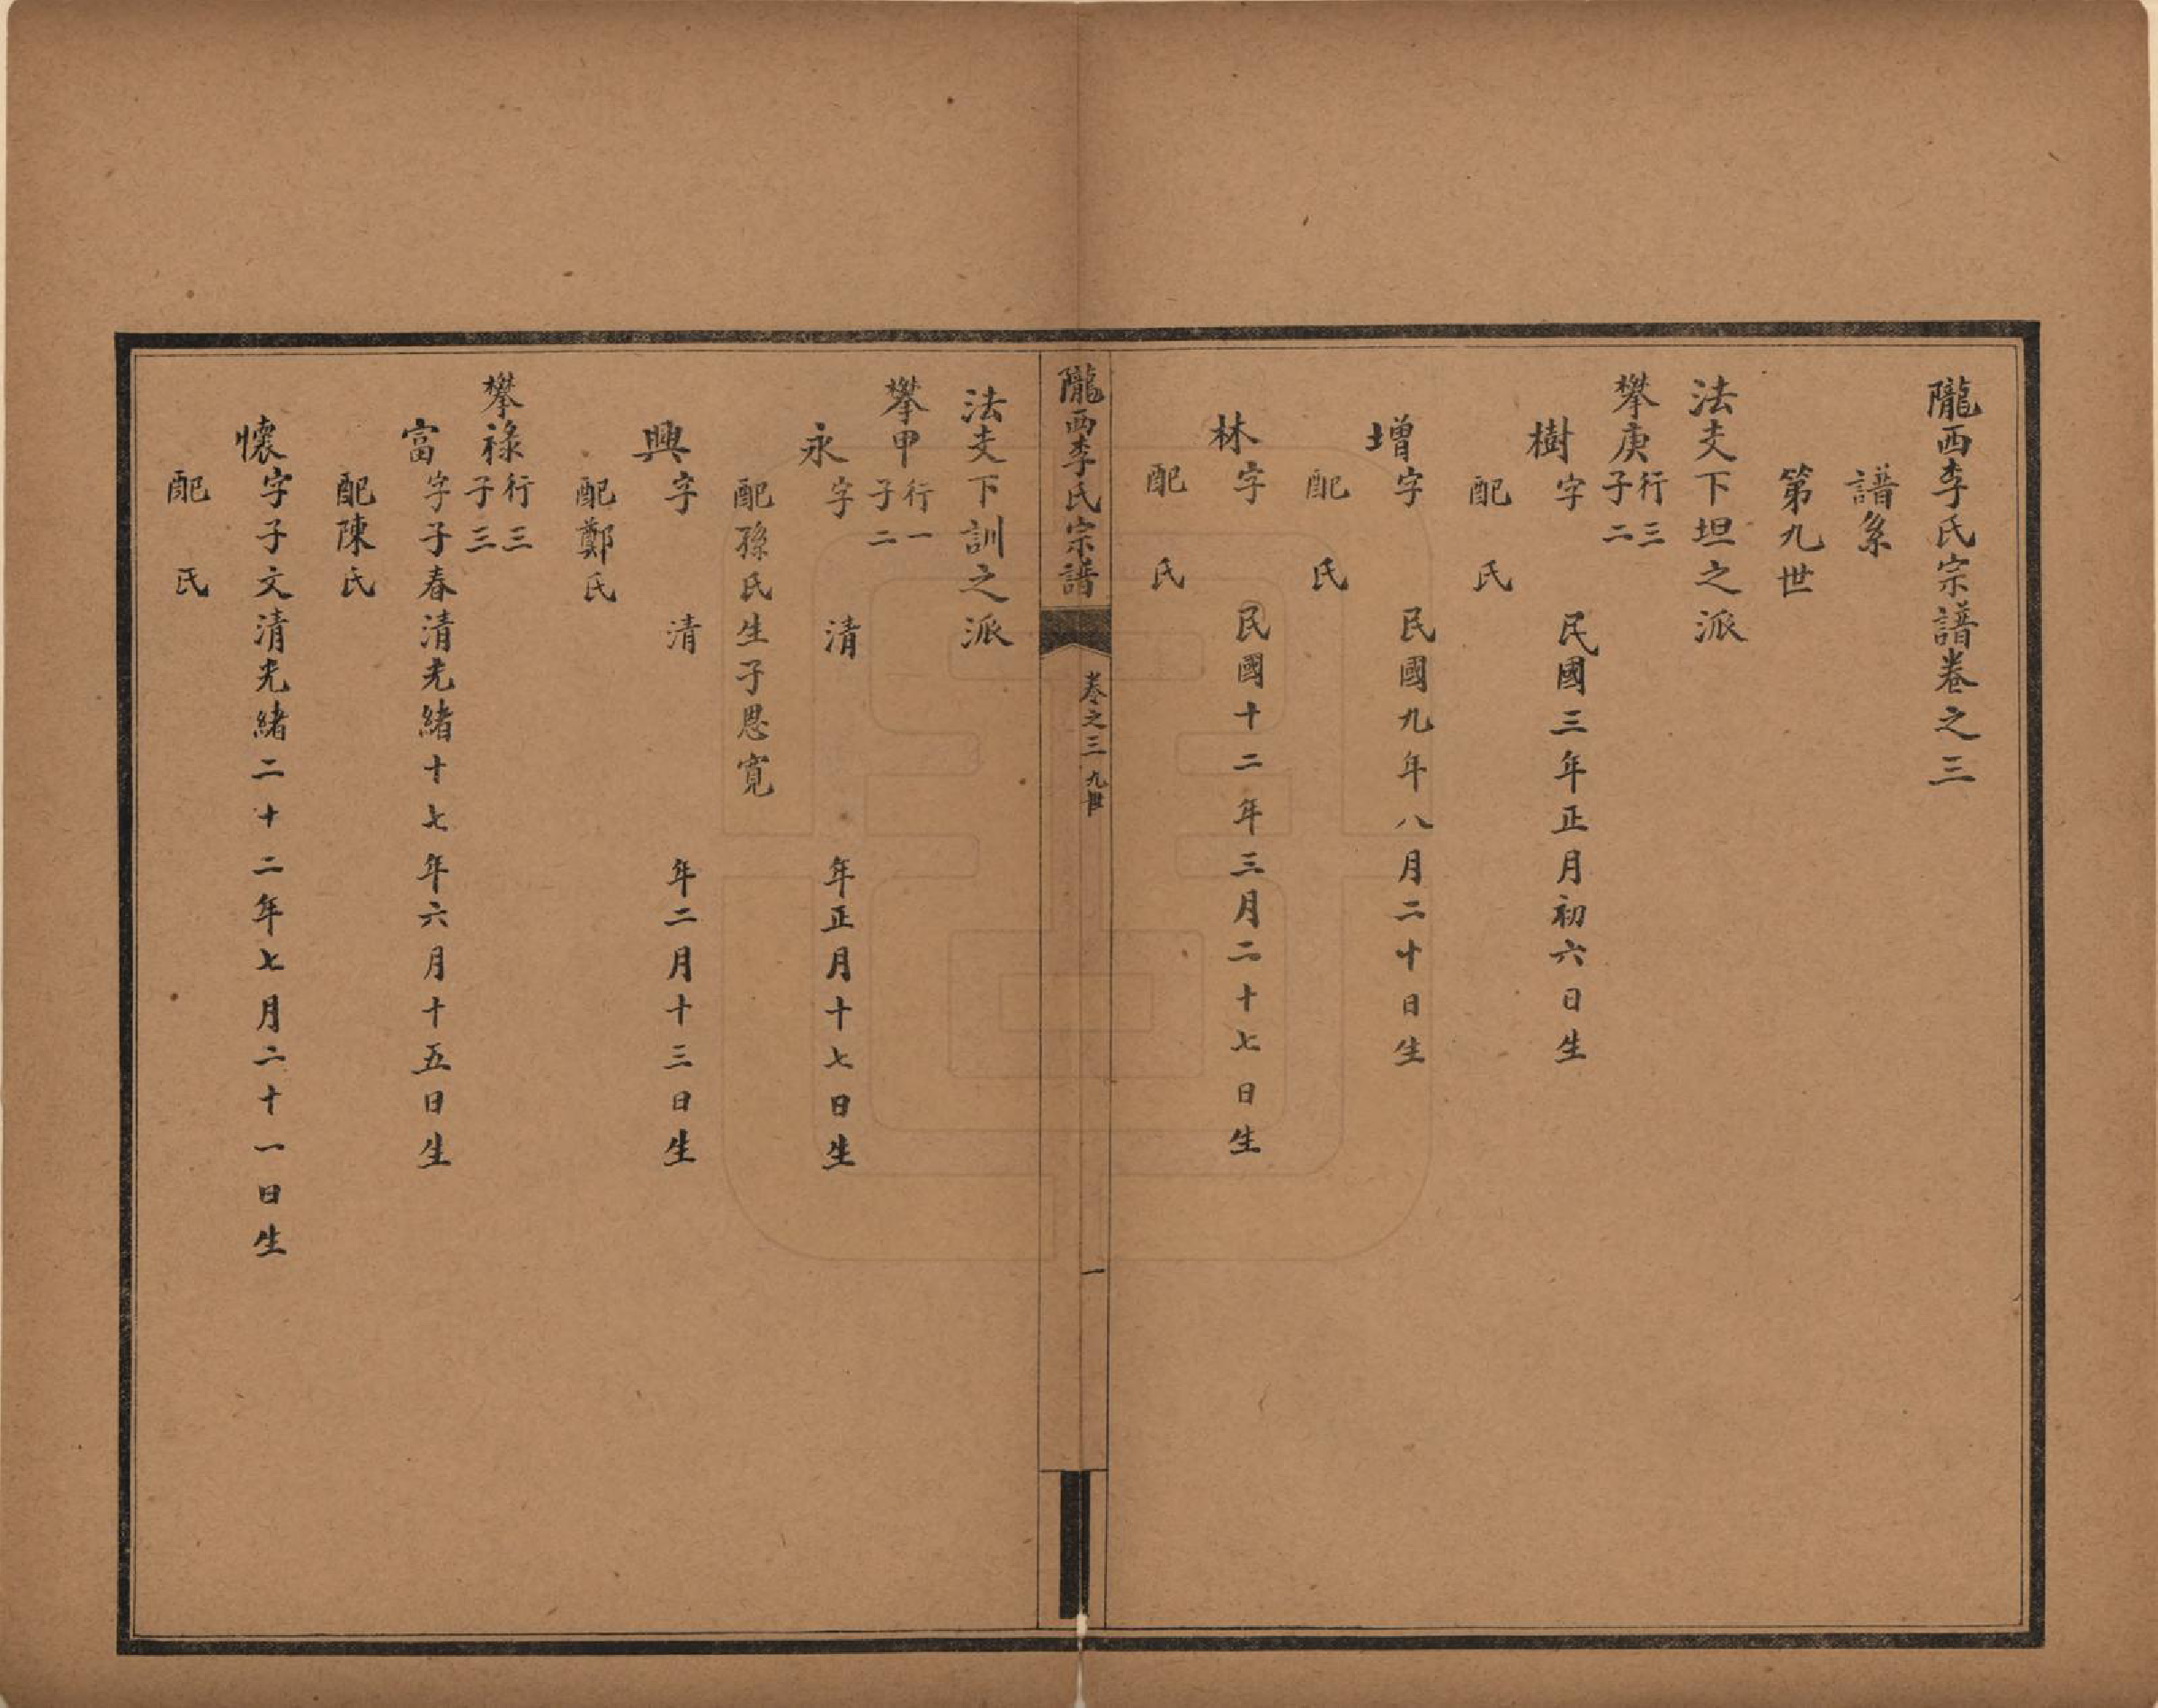 隴西李氏宗譜卷之三
譜系
第九世
法支下坦之派
攀庚行三子二
樹字 民國三年正月初六日生
配 氏
增字 民國九年八月二十日生
配 氏
林字 民國十二年三月二十七日生
配 氏
隴西李氏宗譜 卷之三 九世 一
法支下訓之派
攀甲行一子二
永字 清 年正月十七日生
配孫氏生子恩寬
興字 清 年二月十三日生
配鄭氏
攀祿行三子三
富字子春清光緒十七年六月十五日生
配陳氏
懷字子文清光緒二十二年七月二十一日生
配 氏